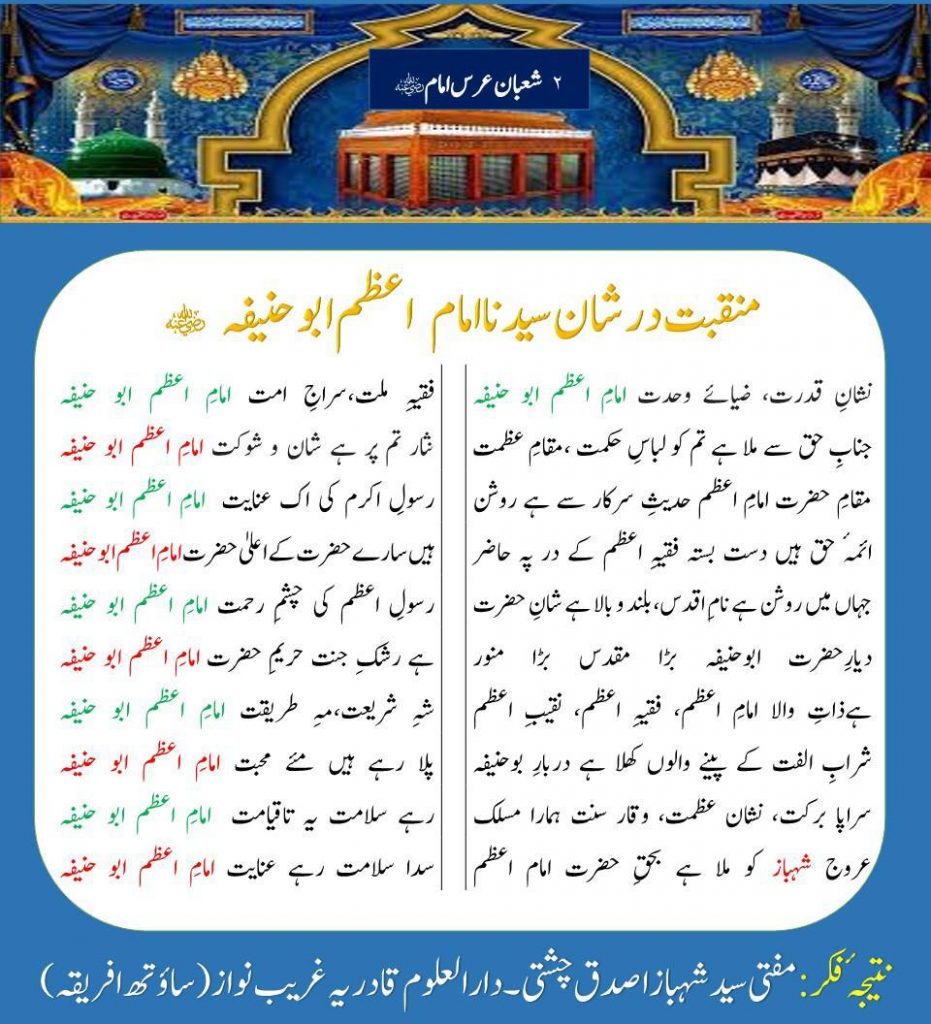 ۲ شعبان عرس امام رضی اللہ عنہ
منقبت در شان سیدنا امام اعظم ابو حنیفہ رضی اللہ عنہ
نشانِ قدرت، ضیائے وحدت امامِ اعظم ابو حنیفہ
فقیہِ ملت، سراجِ امت امامِ اعظم ابو حنیفہ
جنابِ حق سے ملا ہے تم کو لباسِ حکمت ، مقامِ عظمت
نثار تم پر ہے شان و شوکت امامِ اعظم ابو حنیفہ
مقامِ حضرت امامِ اعظم حدیثِ سرکار سے ہے روشن
رسولِ اکرم کی اک عنایت امامِ اعظم ابو حنیفہ
ائمۂ حق ہیں دست بستہ فقیہِ اعظم کے در پہ حاضر
ہیں سارے حضرت کے اعلیٰ حضرت امامِ اعظم ابو حنیفہ
جہاں میں روشن ہے نامِ اقدس، بلند و بالا ہے شانِ حضرت
رسولِ اعظم کی چشمِ رحمت امامِ اعظم ابو حنیفہ
دیارِ حضرت ابوحنیفہ بڑا مقدس بڑا منور
ہے رشکِ جنت حریمِ حضرت امامِ اعظم ابو حنیفہ
ہے ذاتِ والا امامِ اعظم، فقیہِ اعظم، نقیبِ اعظم
شہِ شریعت، مہِ طریقت امامِ اعظم ابو حنیفہ
شرابِ الفت کے پینے والوں کھلا ہے دربارِ بوحنیفہ
پلا رہے ہیں مئے محبت امامِ اعظم ابو حنیفہ
سراپا برکت، نشان عظمت، وقار سنت ہمارا مسلک
رہے سلامت یہ تاقیامت امامِ اعظم ابو حنیفہ
عروج شہباز کو ملا ہے بحقِ حضرت امام اعظم
سدا سلامت رہے عنایت امامِ اعظم ابو حنیفہ
نتیجۂ فکر: مفتی سید شہباز اصدق چشتی۔ دارالعلوم قادریہ غریب نواز (ساؤتھ افریقہ)